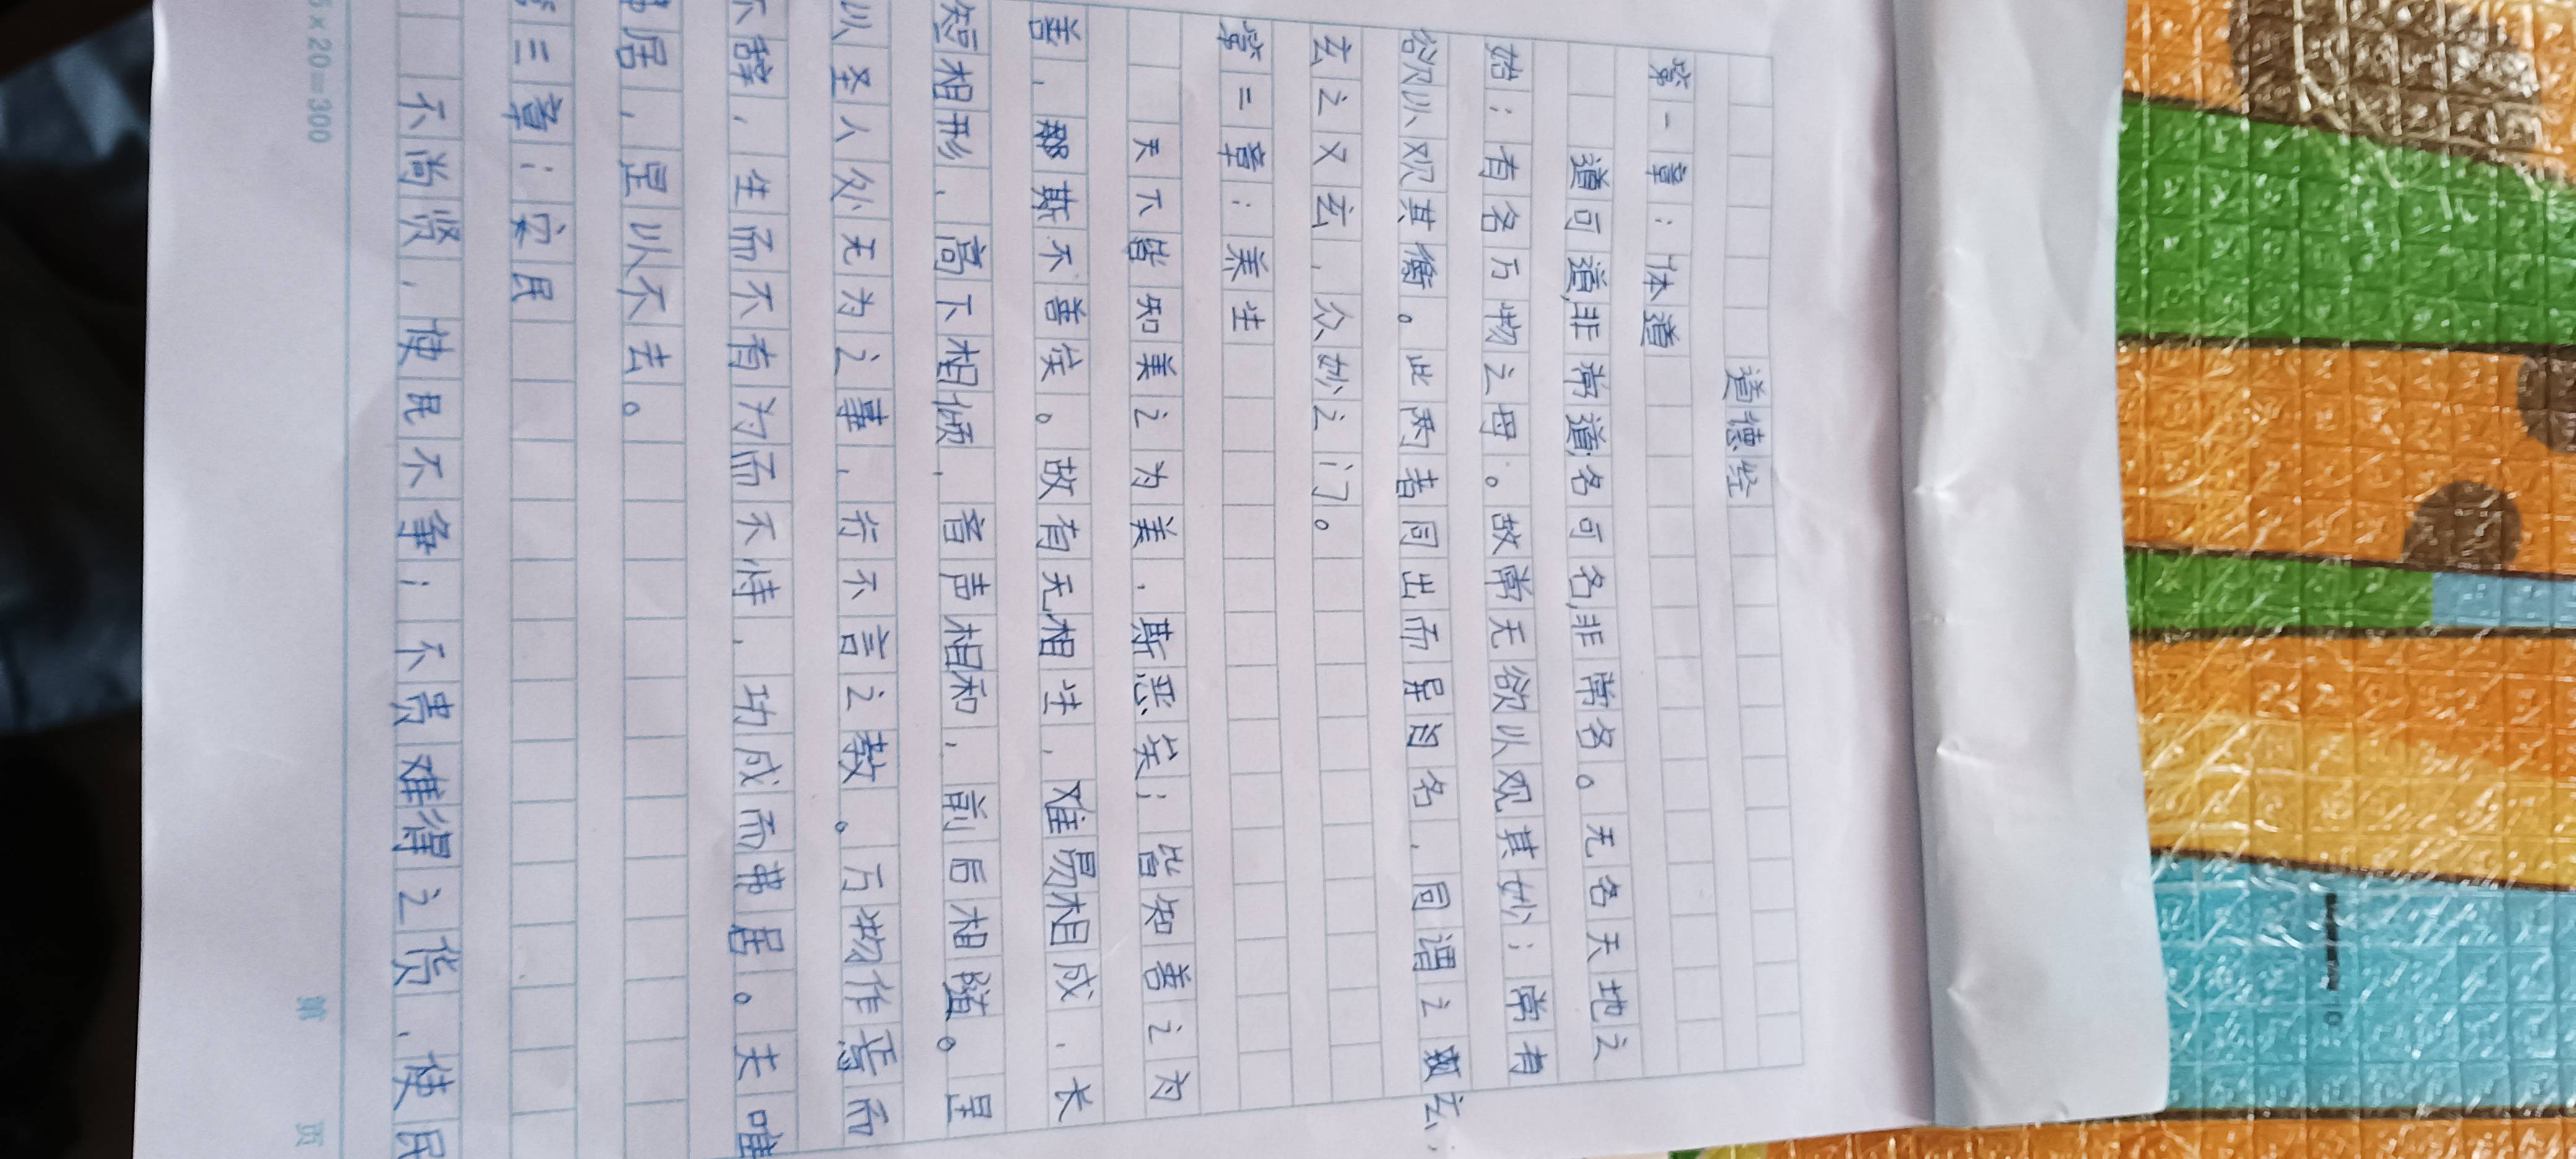 道德经
第一章：体道
道可道，非常道；名可名，非常名。无名天地之
始；有名万物之母。故常无欲以观其妙；常有
欲以观其徼。此两者同出而异名，同谓之玄，
玄之又玄，众妙之门。
第二章：美生
天下皆知美之为美，斯恶矣；皆知善之为
善，斯不善矣。故有无相生，难易相成，长
短相形，高下相倾，音声相和，前后相随。是
以圣人处无为之事，行不言之教。万物作焉而
不辞，生而不有，为而不恃，功成而弗居。夫唯
弗居，是以不去。
第三章：安民
不尚贤，使民不争；不贵难得之货，使民
15×20=300
第 页